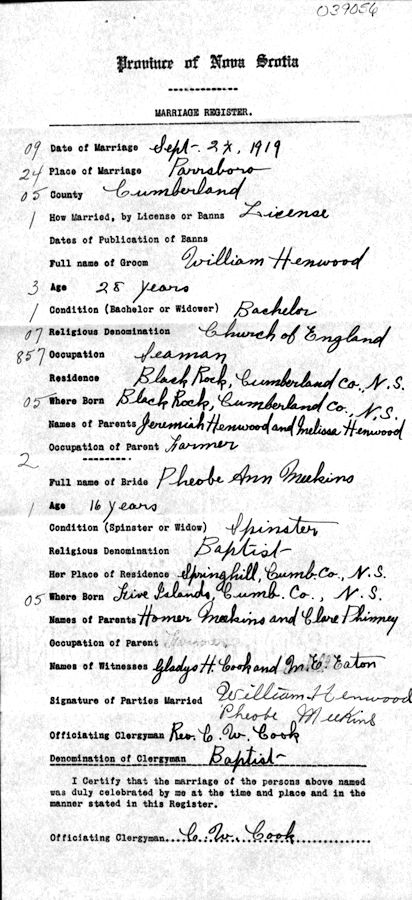 039056
Province of Nova Scotia
MARRIAGE REGISTER.
09 Date of Marriage Sept. 2X, 1919
24 Place of Marriage Parrsboro
05 County Cumberland
1 How Married, by License or Banns License
Dates of Publication of Banns
Full name of Groom William Henwood
3 Age 28 years
1 Condition (Bachelor or Widower) Bachelor
07 Religious Denomination Church of England
857 Occupation Seaman
Residence Black Rock, Cumberland Co., N.S.
05 Where Born Black Rock, Cumberland Co., N.S.
Names of Parents Jeremiah Henwood and Melissa Henwood
Occupation of Parent Farmer
2
Full name of Bride Pheobe Ann Meekins
1 Age 16 years
Condition (Spinster or Widow) Spinster
Religious Denomination Baptist
Her Place of Residence Springhill, Cumb. Co., N.S.
05 Where Born Five Islands, Cumb. Co., N.S.
Names of Parents Homer Meekins and Clare Phinney
Occupation of Parent Farmer
Names of Witnesses Gladys H. Cook and M. C. Eaton
Signature of Parties Married William Henwood
Pheobe Meekins
Officiating Clergyman Rev. C. W. Cook
Denomination of Clergyman Baptist
I Certify that the marriage of the persons above named
was duly celebrated by me at the time and place and in the
manner stated in this Register.
Officiating Clergyman....C. W. Cook................